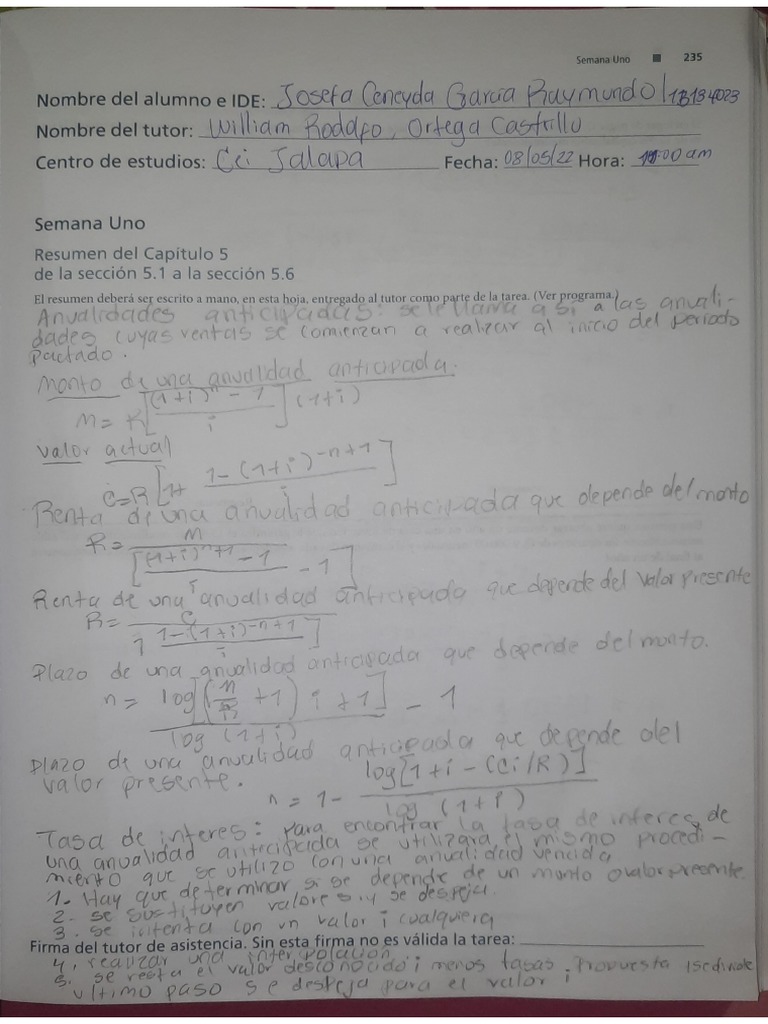 Semana Uno ■ 235
Nombre del alumno e IDE: Josefa Ceneyda Garcia Raymundo / 1B134023
Nombre del tutor: William Rodolfo, Ortega Castrillo
Centro de estudios: Cei Jalapa Fecha: 08/05/22 Hora: 11:00 am
Semana Uno
Resumen del Capítulo 5
de la sección 5.1 a la sección 5.6
El resumen deberá ser escrito a mano, en esta hoja, entregado al tutor como parte de la tarea. (Ver programa.)
Anualidades anticipadas: se le llama así a las anuali-
dades cuyas ventas se comienzan a realizar al inicio del periodo
pactado.
Monto de una anualidad anticipada.
M = R[((1+i)^n - 1)/i](1+i)
Valor actual
C=R[1+ (1-(1+i)^-n+1)/i]
Renta de una anualidad anticipada que depende del monto
R = M/[((1+i)^n+1 - 1)/i - 1]
Renta de una anualidad anticipada que depende del valor presente
R = C/1 [(1-(1+i)^-n+1)/i]
Plazo de una anualidad anticipada que depende del monto.
n = log[(M/R + 1) i + 1]/log (1+i) - 1
Plazo de una anualidad anticipada que depende del
valor presente.
n = 1 - log[1+i-(Ci/R)]/log (1+i)
Tasa de interes: Para encontrar la tasa de interes de
una anualidad anticipada se utilizara el mismo procedi-
miento que se utilizo con una anualidad vencida
1- Hay que determinar si se depende de un monto o valor presente
2. se sustituyen valores y se despeja
3. se intenta con un valor i cualquiera
Firma del tutor de asistencia. Sin esta firma no es válida la tarea:
4, realizar una interpolación
5. se resta el valor desconocido i menos tasas, Propuesta
ultimo paso se despeja para el valor i